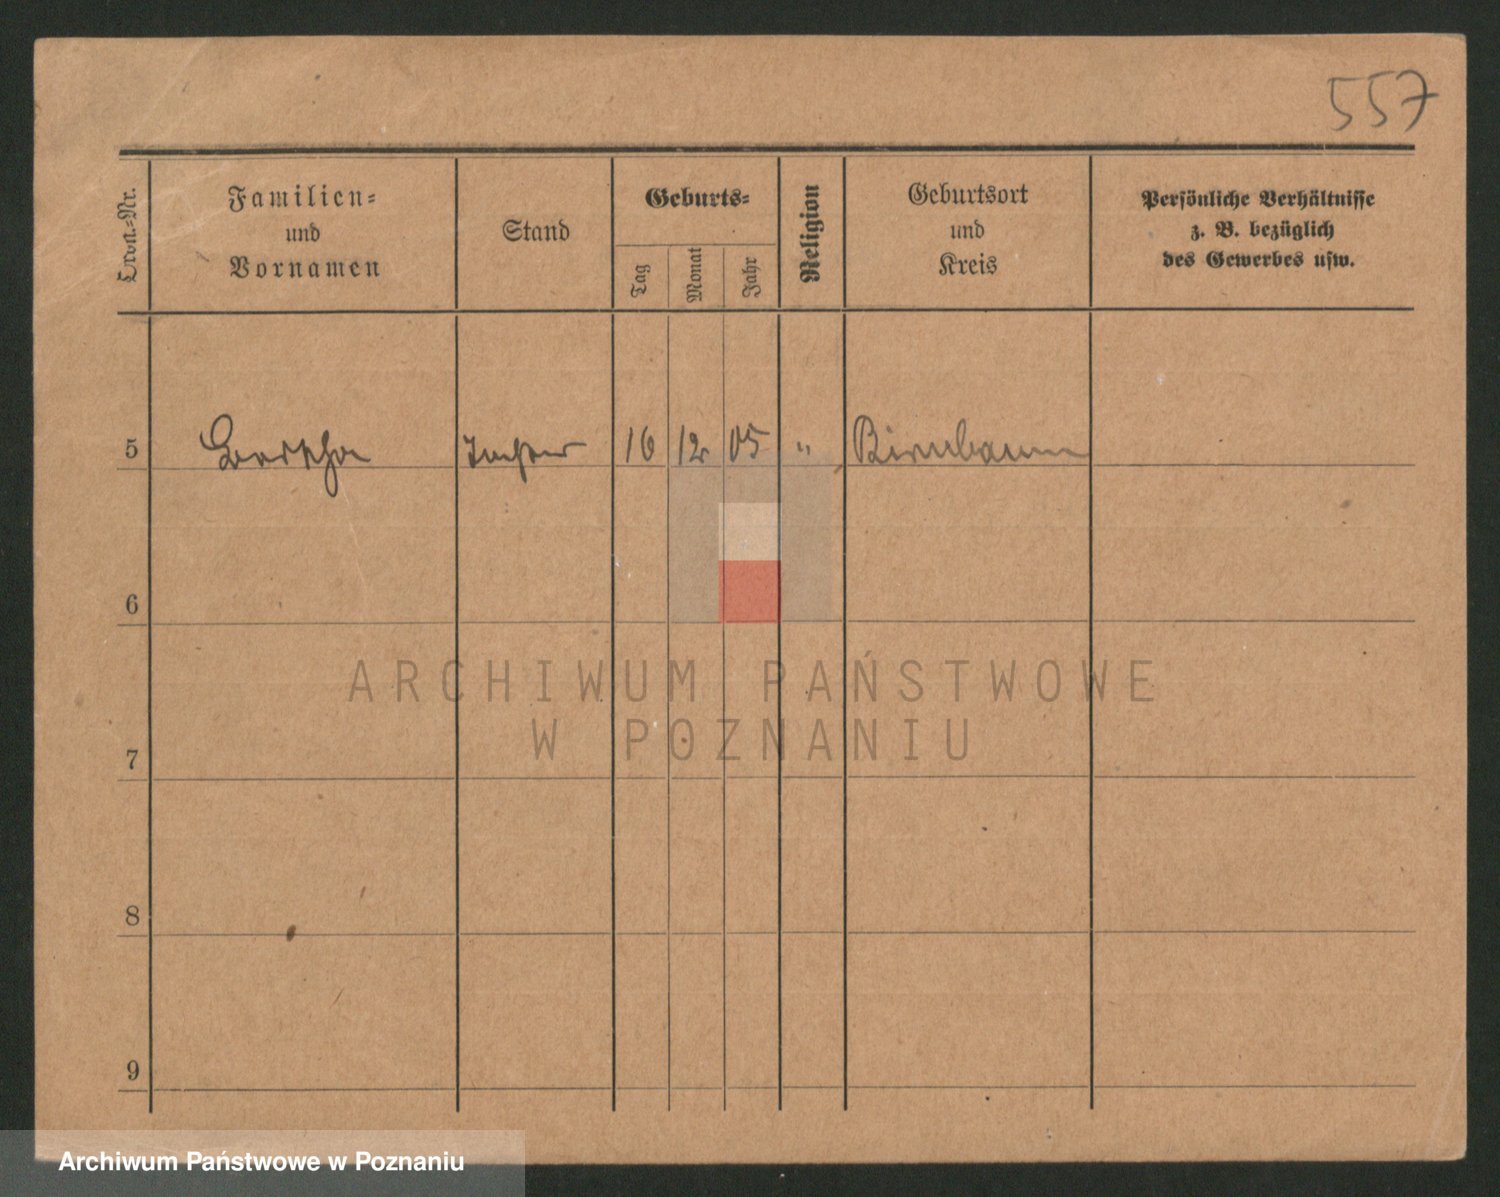 557
Ordn.-Nr.
Familien-
und
Vornamen
Stand
Geburts-
Tag
Monat
Jahr
Religion
Geburtsort
und
Kreis
Persönliche Verhältnisse
z. B. bezüglich
des Gewerbes usw.
5 Bertha Tochter 16 12 05 " Birnbaum
6
ARCHIWUM PAŃSTWOWE
W POZNANIU
7
8
9
Archiwum Państwowe w Poznaniu